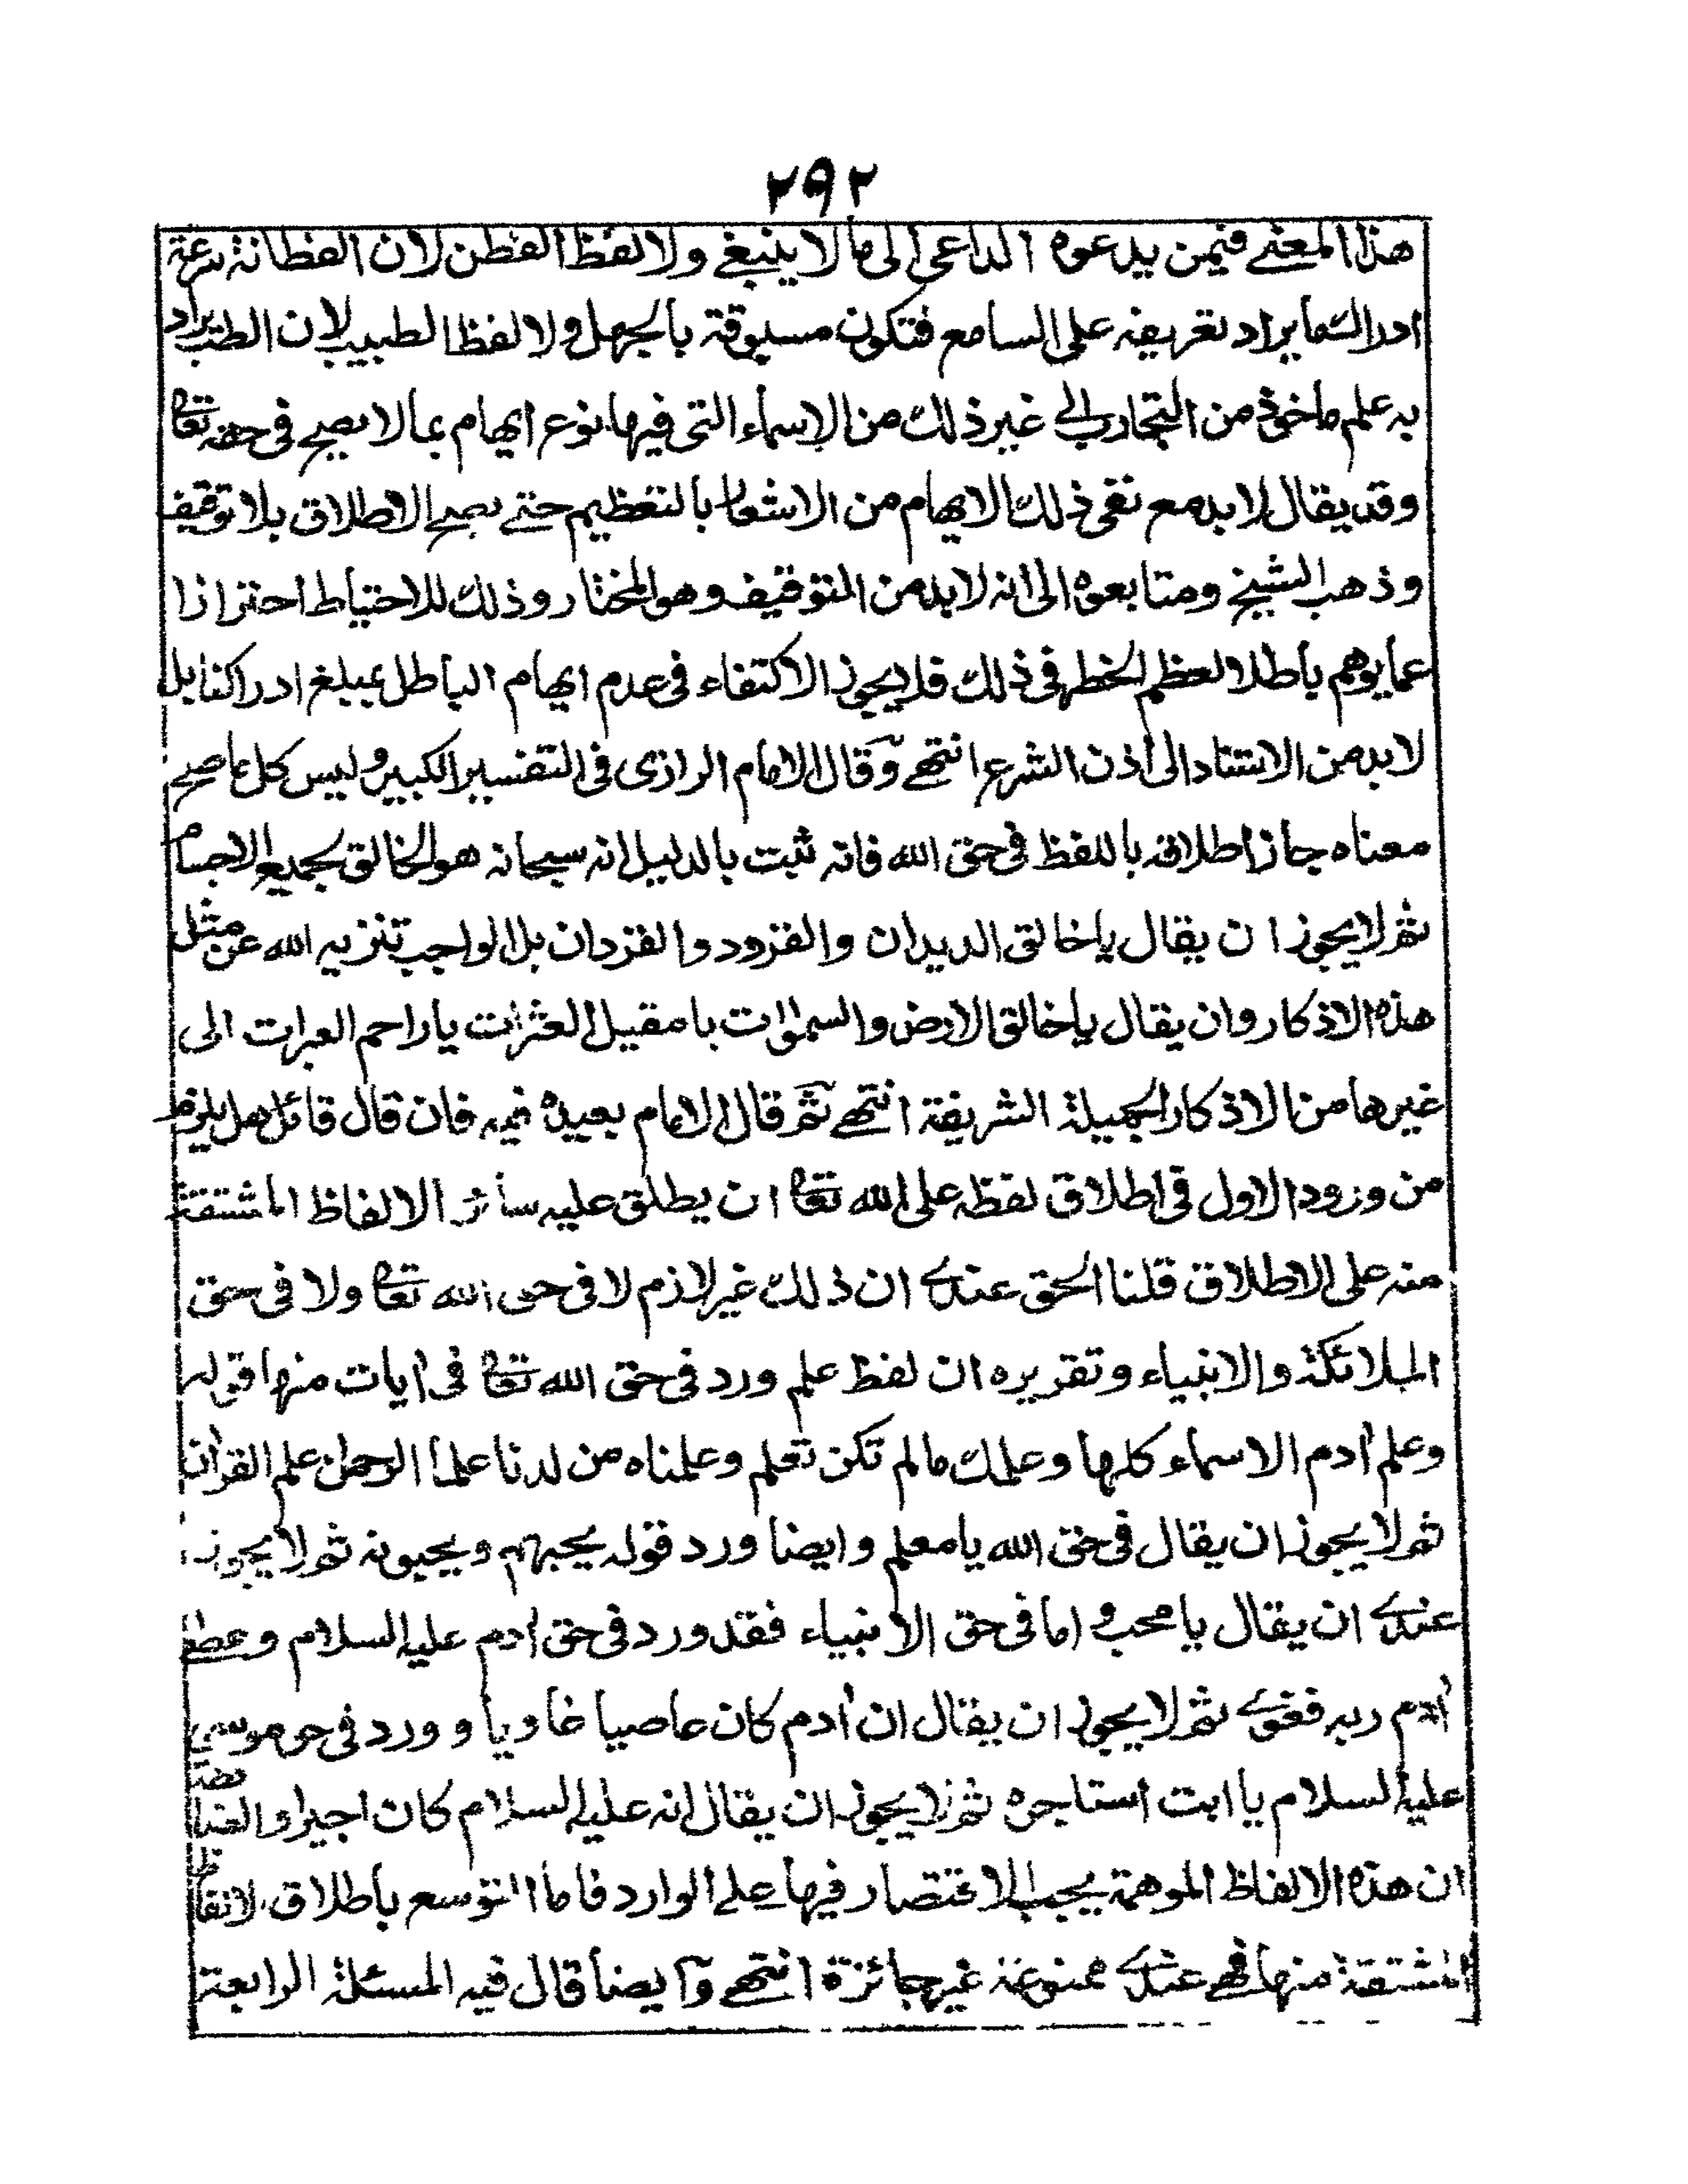 ٢٩٢
هذا المعنے فيمن يدعوه الداعى الى ما لا ينبغے ولا لفظ الفطن لان الفطانة سرعة
ادراك ما يراد تعريفه على السامع فتكون مسبوقة بالجهل ولا لفظ الطبيب لان الطب يراد
به علم ماخوذ من التجارب الے غير ذلك من الاسماء التى فيها نوع ايهام بما لا يصح فى حقه تعالٰے
وقد يقال لا بد مع نفى ذلك الايهام من الاشعار بالتعظيم حتے يصح الاطلاق بلا توقيف
وذهب الشيخ ومتابعوه الى انه لا بد من التوقيف وهو المختار وذلك للاحتياط احترازا
عما يوهم باطلا لعظم الخطر فى ذلك فلا يجوز الاكتفاء فى عدم ايهام الباطل بمبلغ ادراكنا بل
لا بد من الاستناد الى اذن الشرع انتهے وقال الامام الرازى فى التفسير الكبير وليس كل ما صح
معناه جاز اطلاقه باللفظ فى حق الله فانه ثبت بالدليل انه سبحانه هو الخالق لجميع الاجسام
ثم لا يجوز ان يقال يا خالق الديدان والقرود والقردان بل الواجب تنزيه الله عن مثل
هذه الاذكار وان يقال يا خالق الارض والسمٰوات يا مقيل العثرات يا راحم العبرات الى
غيرها من الاذكار الجميلة الشريفة انتهے ثم قال الامام بعيده فيه فان قال قائل هل يلزم
من ورود الاول فى اطلاق لفظه على الله تعالٰے ان يطلق عليه سائر الالفاظ المشتقة
منه على الاطلاق قلنا الحق عندے ان ذلك غير لازم لا فى حق الله تعالٰے ولا فى حق
الملائكة والانبياء وتقريره ان لفظ علم ورد فى حق الله تعالٰے فى اٰيات منها قوله
وعلم اٰدم الاسماء كلها وعلمك ما لم تكن تعلم وعلمناه من لدنا علما الرحمٰن علم القراٰن
ثم لا يجوز ان يقال فى حق الله يا معلم وايضا ورد قوله يحبهم ويحبونه ثم لا يجوز
عندے ان يقال يا محب و اما فى حق الانبياء فقد ورد فى حق اٰدم عليه السلام وعصٰے
اٰدم ربه فغوے ثم لا يجوز ان يقال ان اٰدم كان عاصيا غاويا و ورد فى حق موسى
عليه السلام يا ابت استاجره ثم لا يجوز ان يقال انه عليه السلام كان اجيرا والضابطة
ان هذه الالفاظ الموهمة يجب الاقتصار فيها علے الوارد فاما التوسع باطلاق الالفاظ
المشتقة منها فهے عندے ممنوعة غير جائزة انتهے وايضا قال فيه المسئلة الرابعة